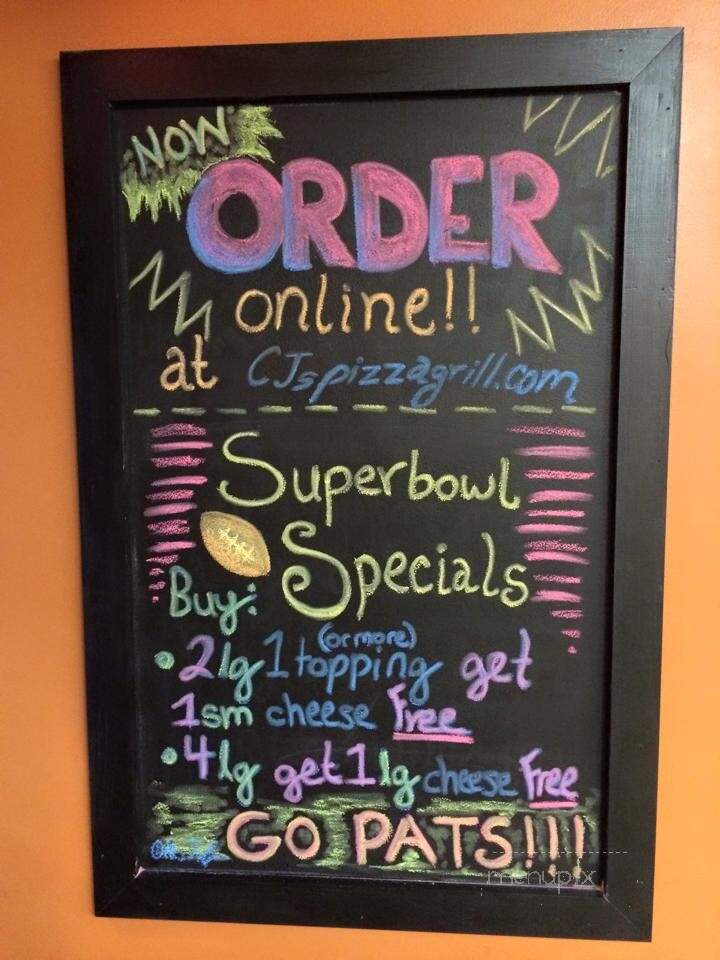 NOW
ORDER
online!!
at CJspizzagrill.com
Superbowl
Specials
Buy:
• 2 lg 1 (or more) topping get
1 sm cheese Free
• 4 lg get 1 lg cheese Free
GO PATS!!!
menupix